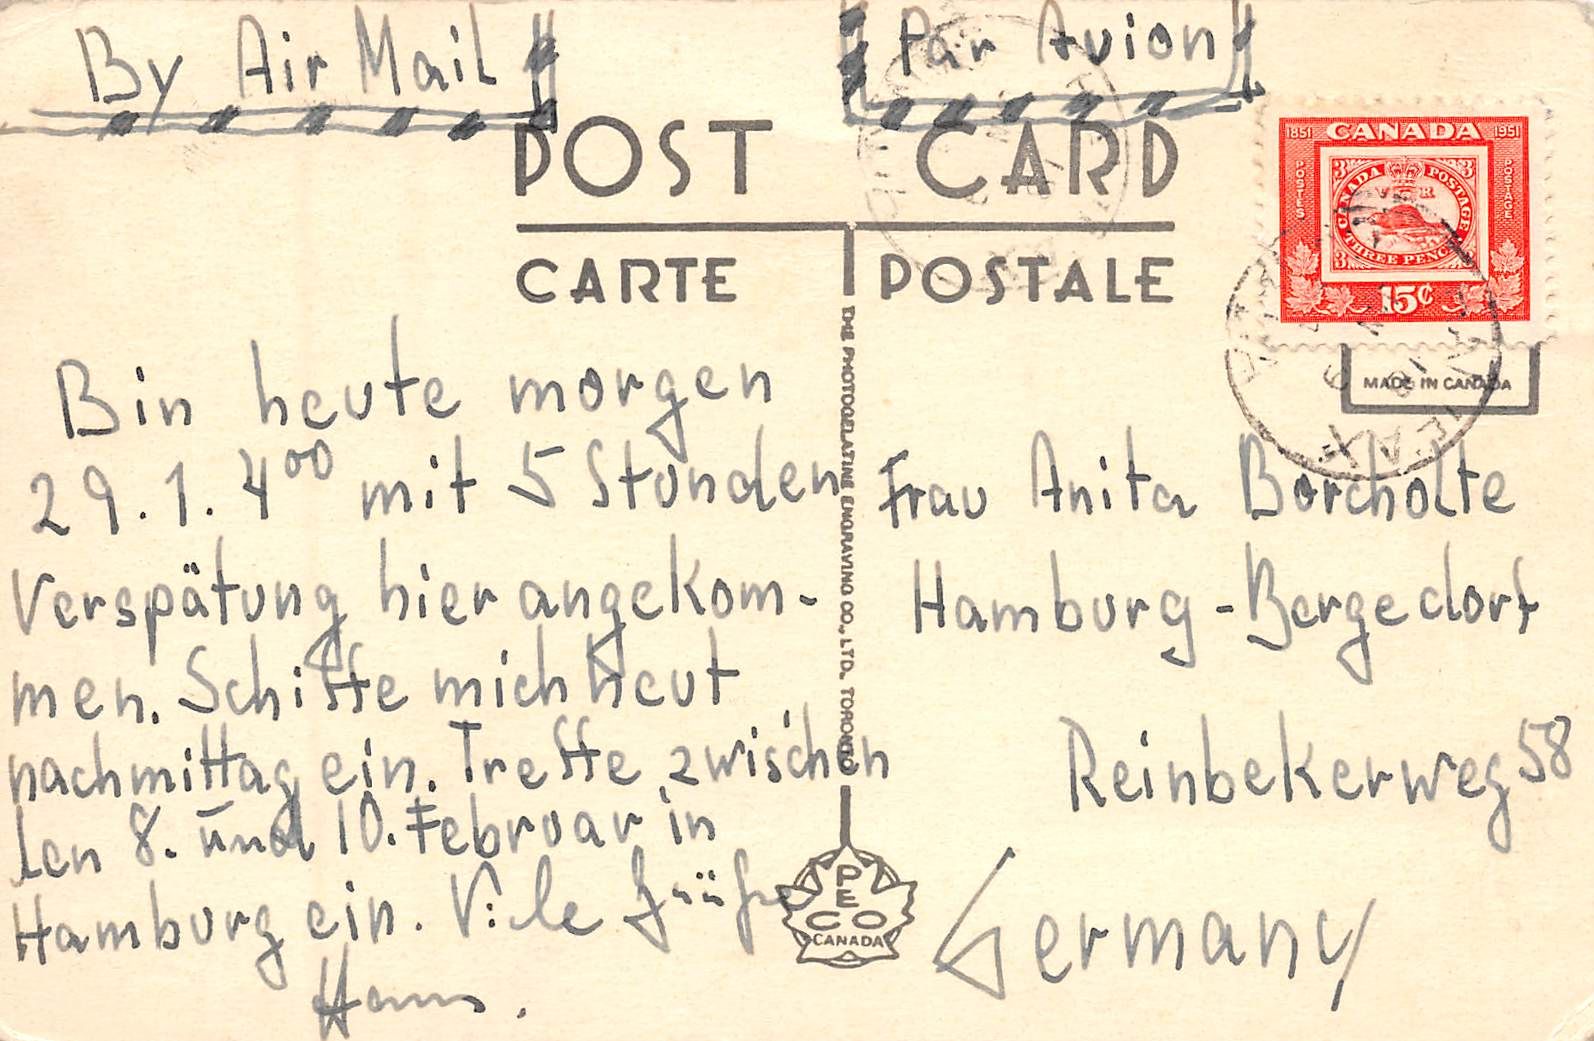 By Air Mail
Par Avion
POST CARD
CARTE POSTALE
1851 CANADA 1951
POSTES POSTAGE
3 3
CANADA POSTAGE
V R
THREE PENCE
3 3
15¢
MADE IN CANADA
THE PHOTOGELATINE ENGRAVING CO., LTD. TORONTO
Bin heute morgen
29.1. 4⁰⁰ mit 5 Stunden
Verspätung hier angekom-
men. Schiffe mich heut
nachmittag ein. Treffe zwischen
den 8. und 10. Februar in
Hamburg ein. Viele Grüße
Hans.
Frau Anita Borcholte
Hamburg-Bergedorf
Reinbekerweg 58
Germany
PECO
CANADA